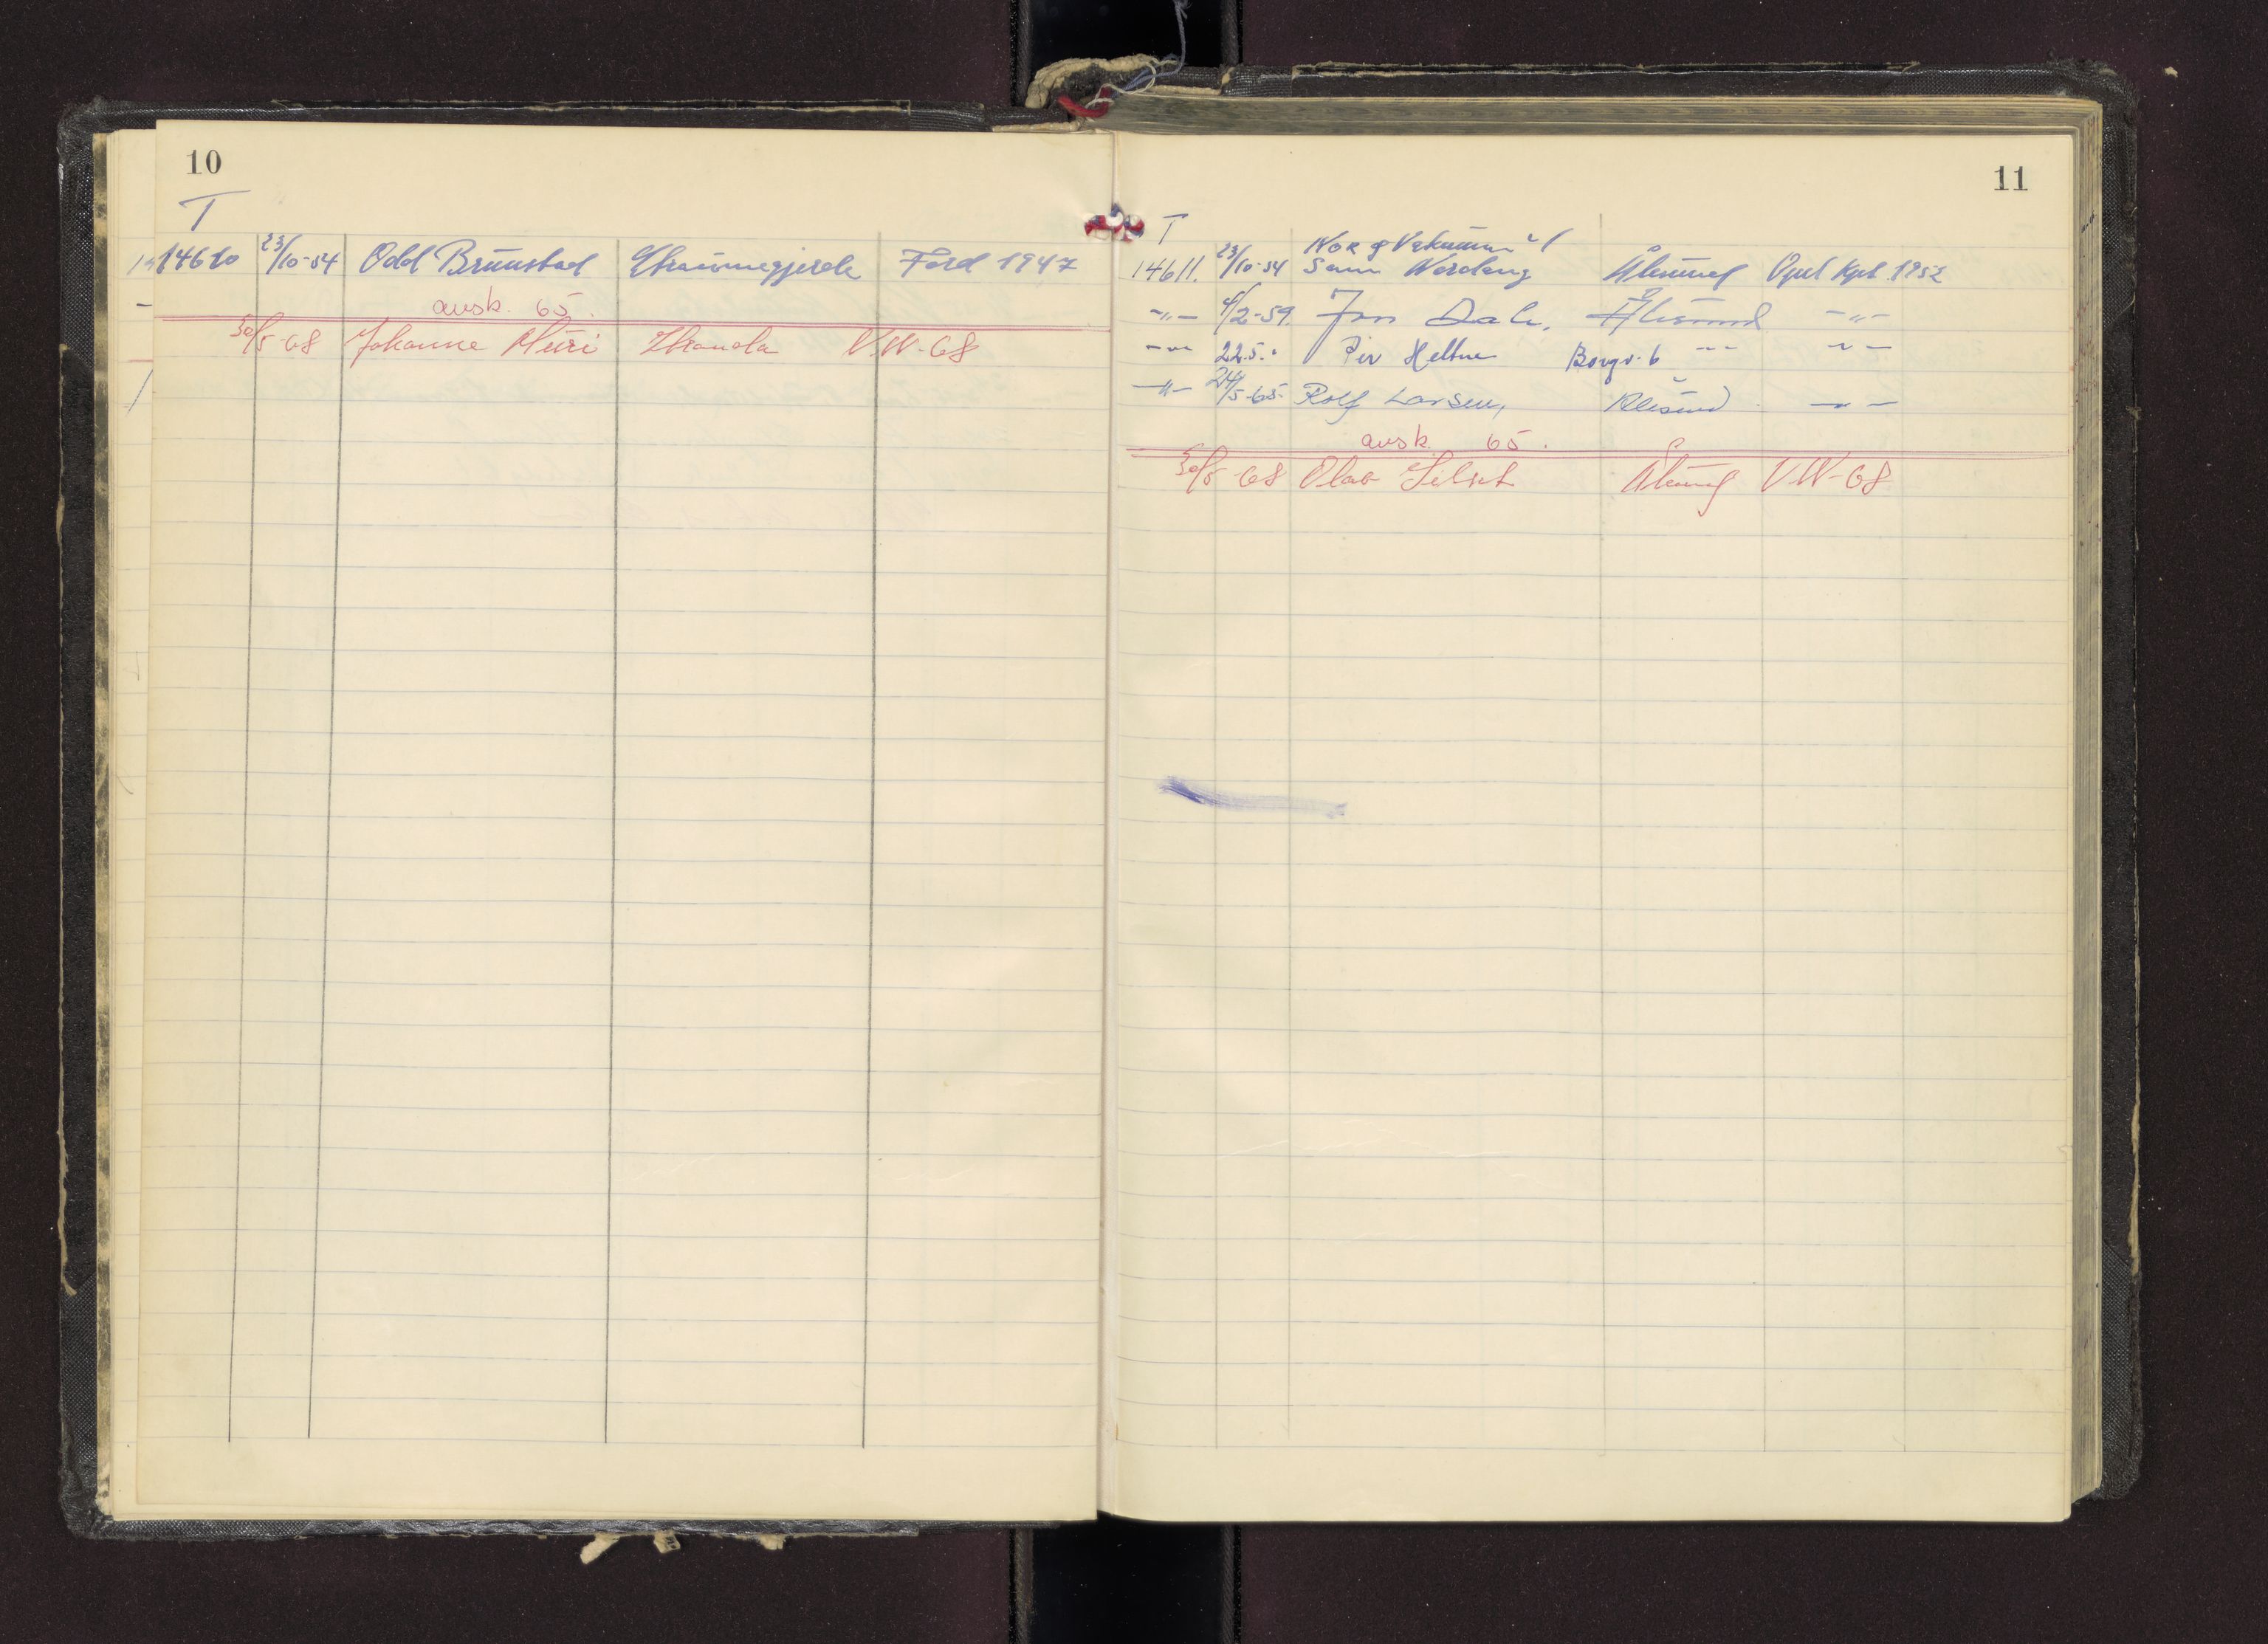 10
T
14610 23/10-54 Odd Brunstad Straumegjerde Ford 1947
avsk. 65.
30/5-68 Johanne Muri Stranda V.W-68
11
T
Norg Vakuum
14611. 23/10-54 Nordeng Ålesund Opel Kpt. 1952
-"- 4/2-59. Jon Dale, Ålesund -"-
-"- 22.5. Per Heltne Borgv. 6 -"- -"-
-"- 24/5-65. Rolf Larsen, Ålesund -"-
avsk. 65.
30/5-68 Olav Ålesund V.W-68